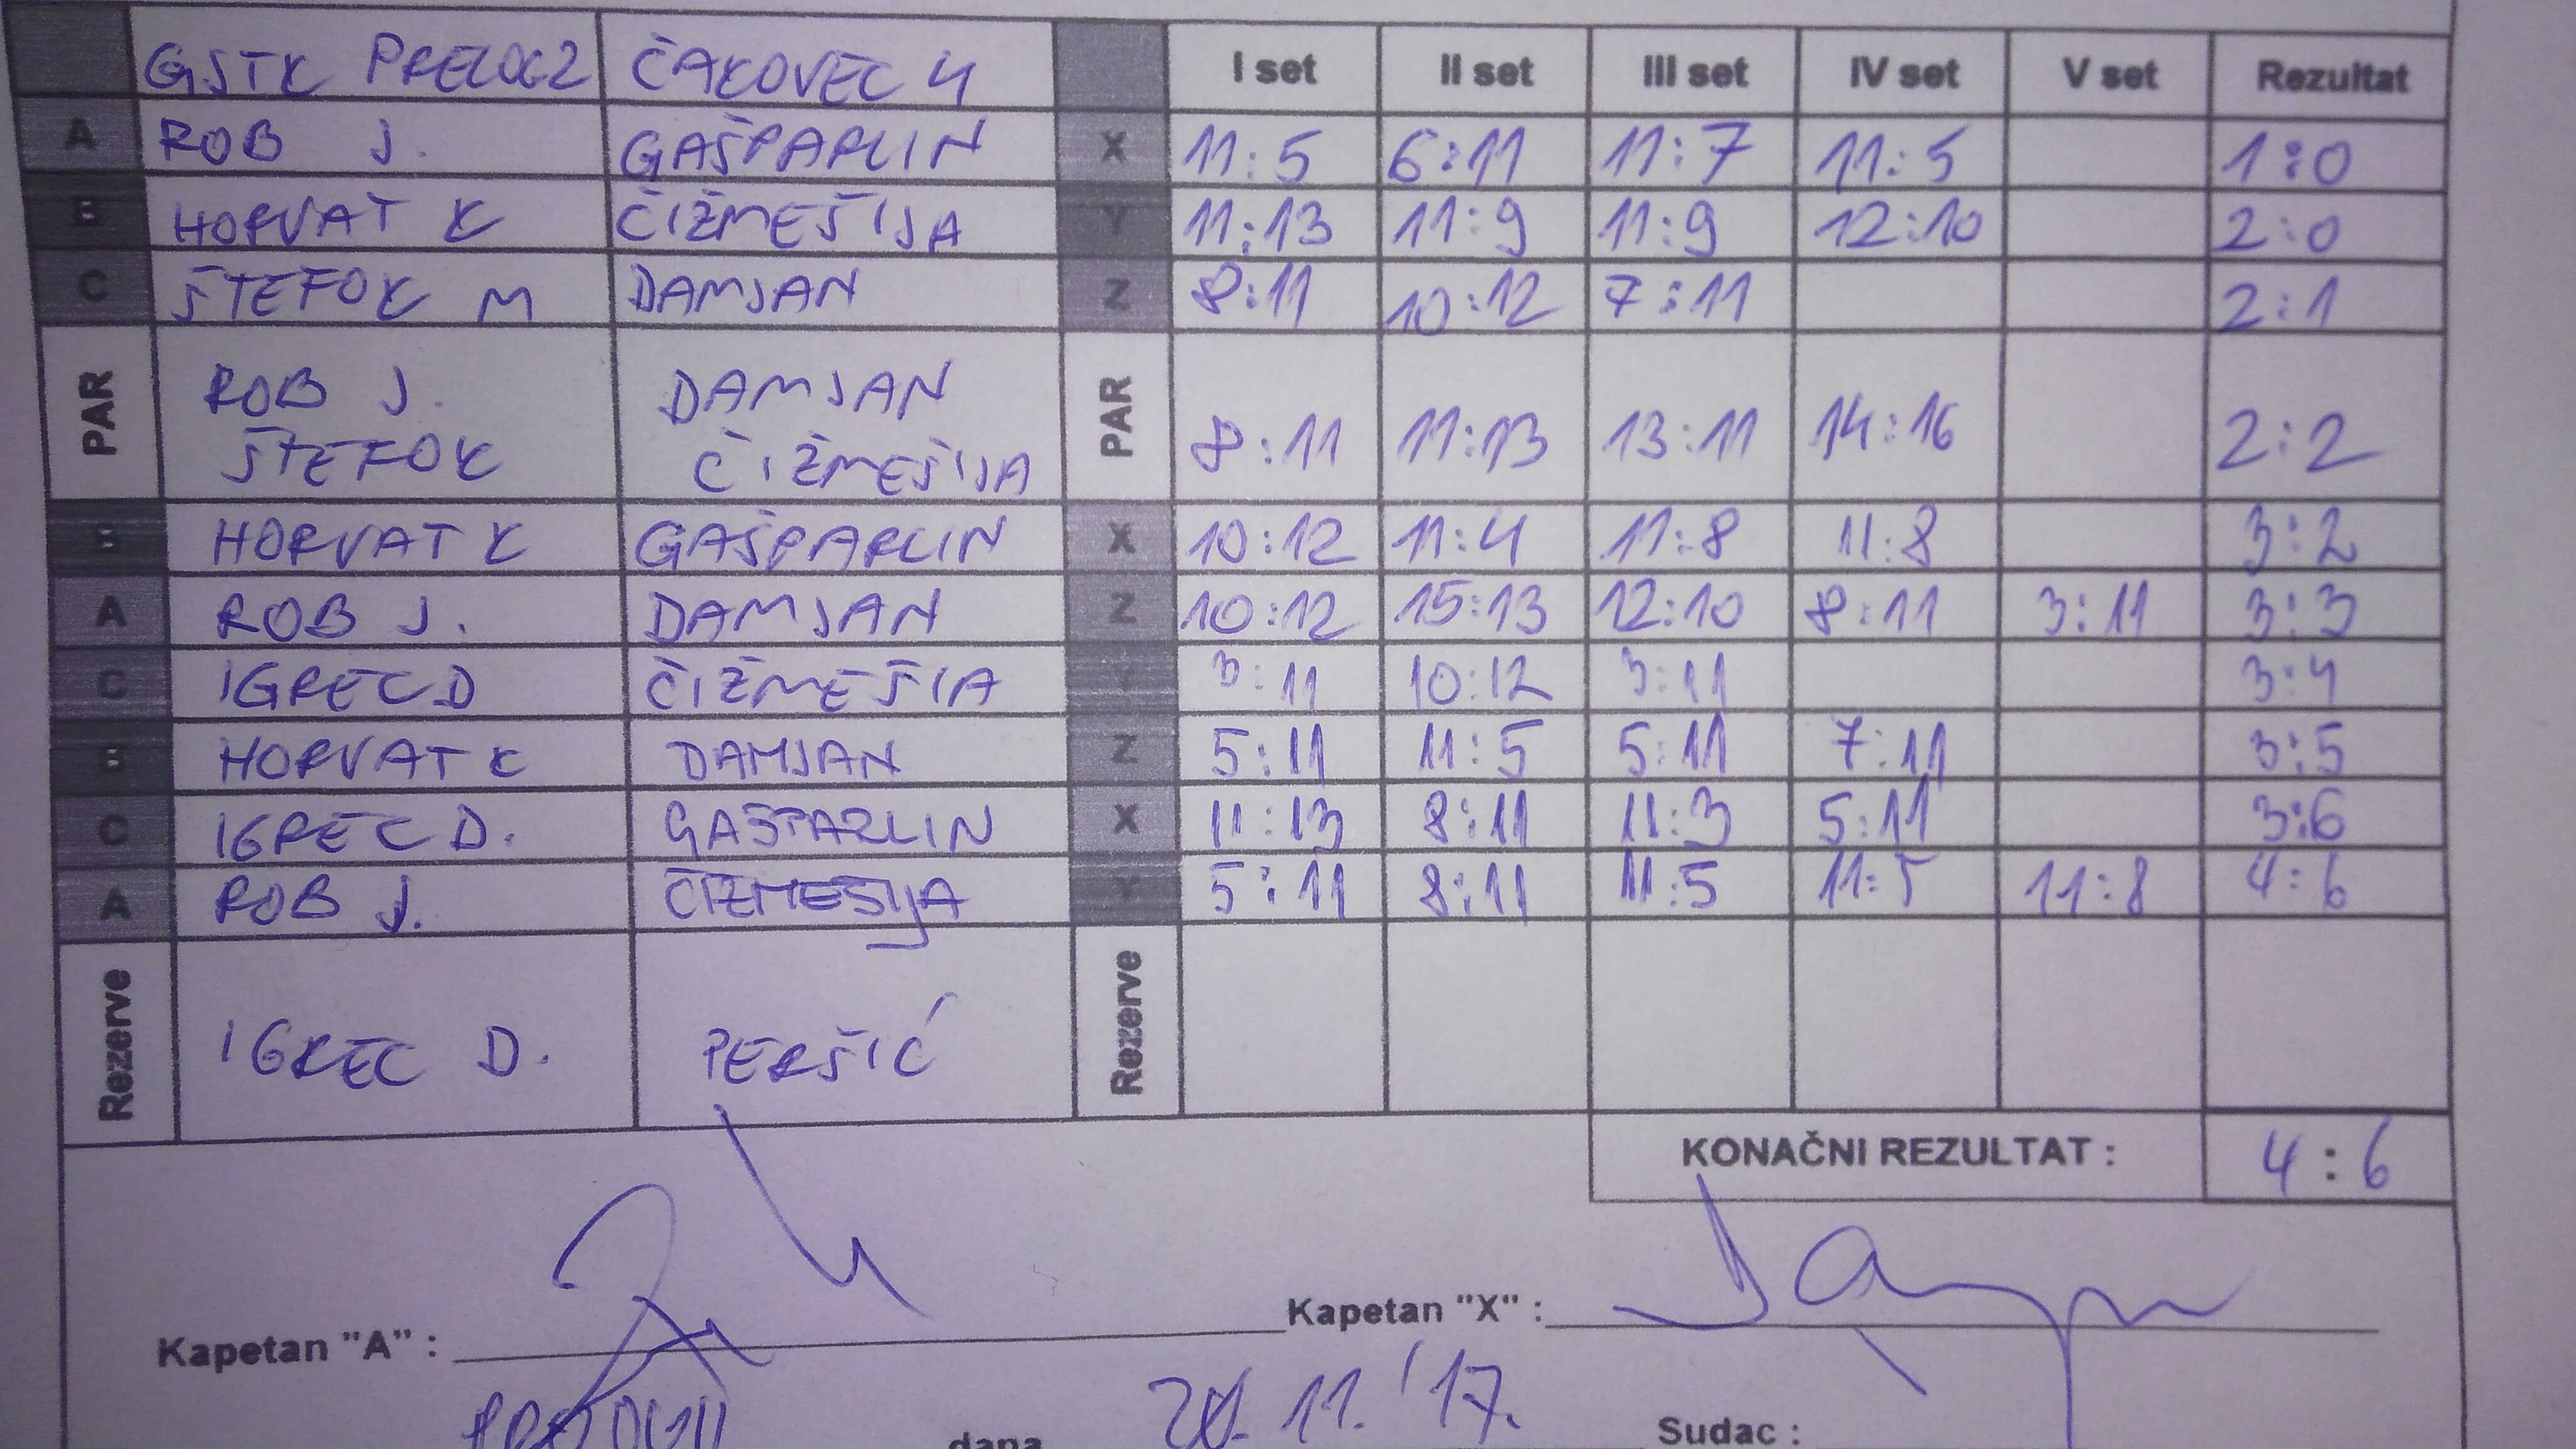 GSTK PRELOG2 ČAKOVEC 4 I set II set III set IV set V set Rezultat
A ROB J. GAŠPARLIN X 11:5 6:11 11:7 11:5 1:0
B HORVAT K ČIŽMEŠIJA Y 11:13 11:9 11:9 12:10 2:0
C ŠTEFOK M DAMJAN Z 8:11 10:12 7:11 2:1
PAR ROB J. DAMJAN PAR 8:11 11:13 13:11 14:16 2:2
ŠTEFOK ČIŽMEŠIJA
B HORVAT K GAŠPARLIN X 10:12 11:4 11:8 11:8 3:2
A ROB J. DAMJAN Z 10:12 15:13 12:10 8:11 3:11 3:3
C IGREC D ČIŽMEŠIA Y 3:11 10:12 3:11 3:4
B HORVAT K DAMJAN Z 5:11 11:5 5:11 7:11 3:5
C IGREC D. GAŠPARLIN X 11:13 8:11 11:3 5:11 3:6
A ROB J. ČIZMEŠIJA Y 5:11 8:11 11:5 11:5 11:8 4:6
Rezerve IGREC D. PERŠIĆ Rezerve
KONAČNI REZULTAT : 4:6
Kapetan "A" : Kapetan "X" :
dana 11.'17. Sudac :